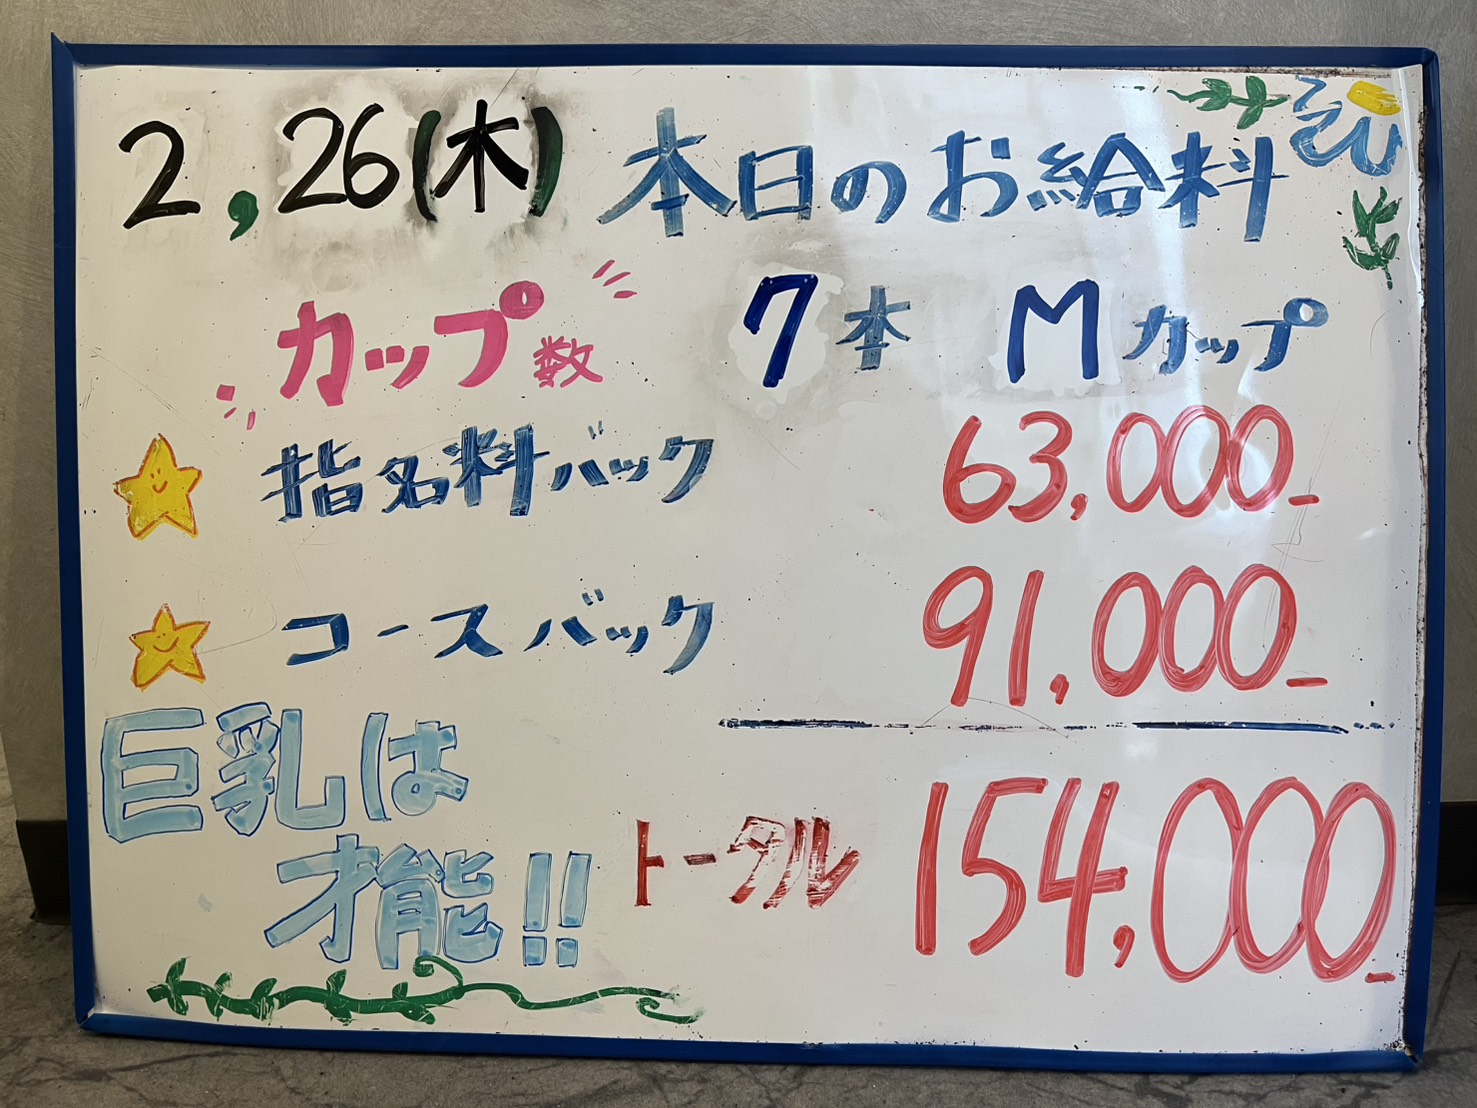 2,26(木) 本日のお給料
カップ数 7本 Mカップ
指名料バック 63,000-
コースバック 91,000-
巨乳は
才能!!
トータル 154,000-